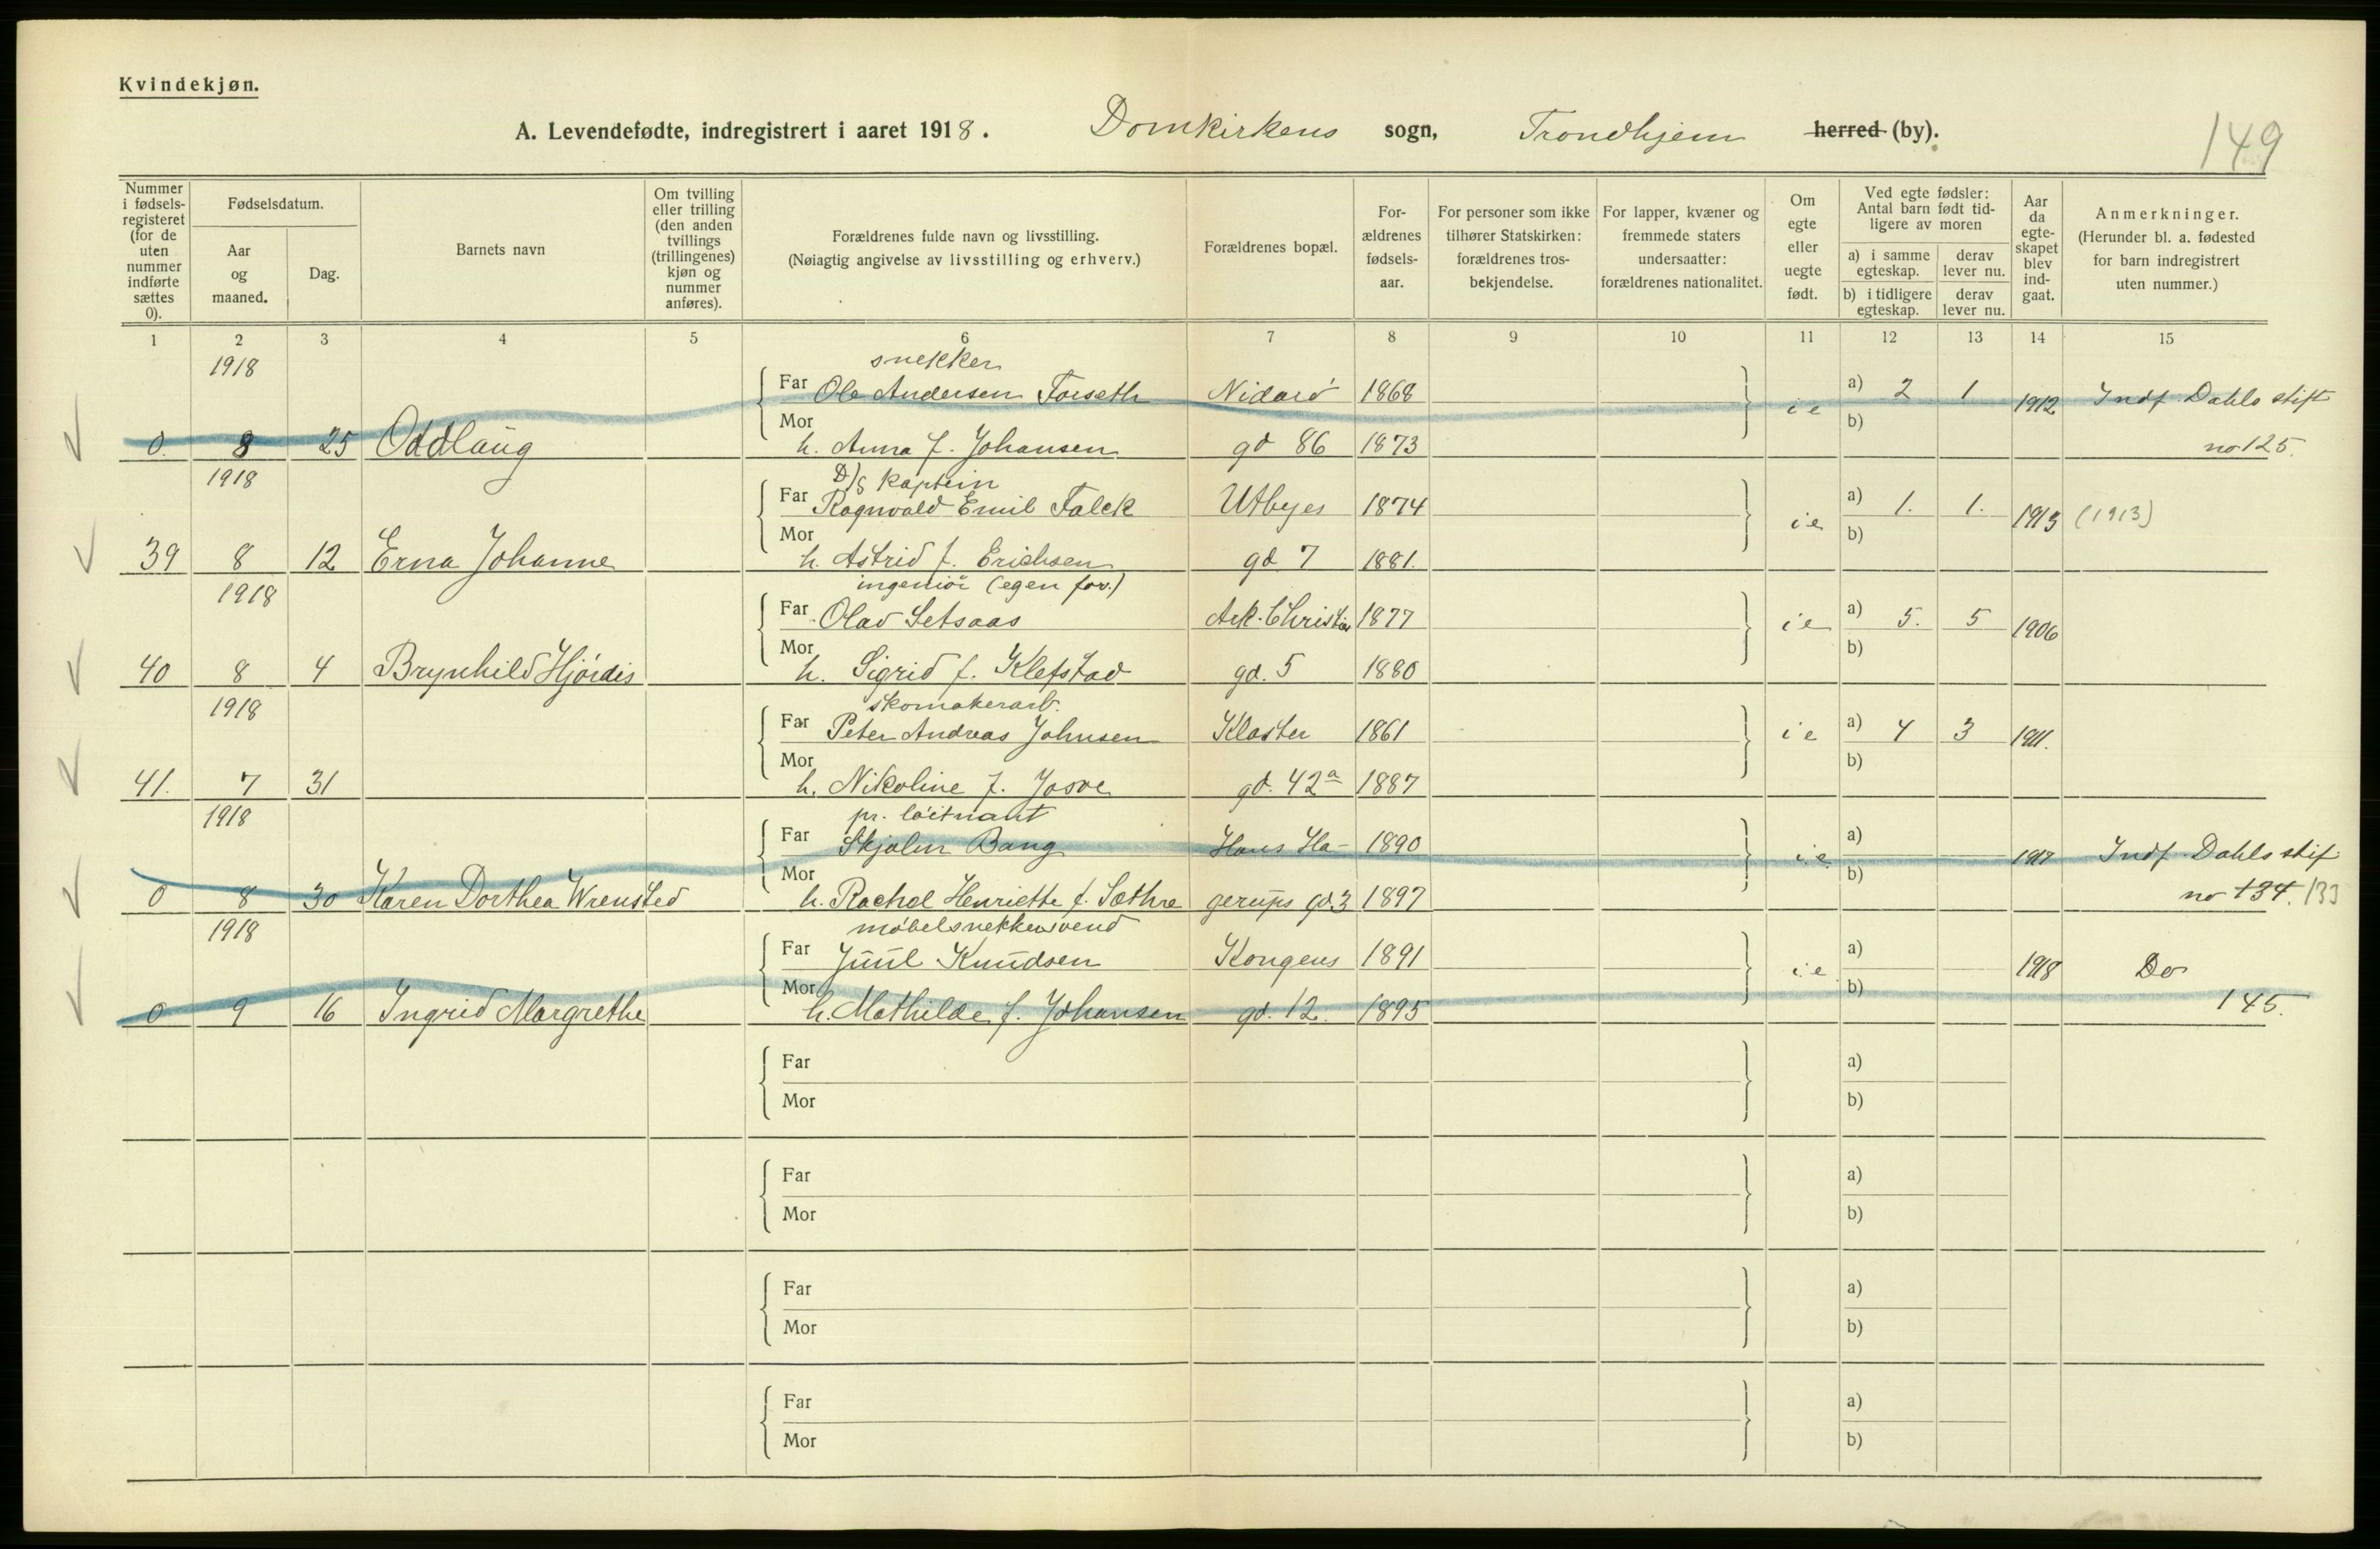 Kvindekjøn.
A. Levendefødte, indregistrert i aaret 1918. Domkirkens sogn, Trondhjem herred (by).
149
Nummer i fødselsregisteret (for de uten nummer indførte sættes 0).
Fødselsdatum.
Aar og maaned.
Dag.
Barnets navn
Om tvilling eller trilling (den anden tvillings (trillingenes) kjøn og nummer anføres).
Forældrenes fulde navn og livsstilling.
(Nøiagtig angivelse av livsstilling og erhverv.)
Forældrenes bopæl.
Forældrenes fødselsaar.
For personer som ikke tilhører Statskirken: forældrenes trosbekjendelse.
For lapper, kvæner og fremmede staters undersaatter: forældrenes nationalitet.
Om egte eller uegte født.
Ved egte fødsler: Antal barn født tidligere av moren
a) i samme egteskap.
derav lever nu.
b) i tidligere egteskap.
derav lever nu.
Aar da egteskapet blev indgaat.
Anmerkninger.
(Herunder bl. a. fødested for barn indregistrert uten nummer.)
1 2 3 4 5 6 7 8 9 10 11 12 13 14 15
1918 snekker
Far Ole Andersen Forseth Nidarø 1868 ie a) 2 1 1912 Indf. Dahls stift
0. 8 25 Oddlaug Mor h. Anna f. Johansen gd 86 1873 b) no 125.
1918 D/S kaptein
Far Ragnvald Emil Falck Utbyes 1874 ie a) 1. 1. 1913 (1913)
39 8 12 Erna Johanne Mor h. Astrid f. Erichsen gd 7 1881. b)
1918 ingeniør (egen forr.)
Far Olav Setsaas Ark. Christies 1877 ie a) 5. 5 1906
40 8 4 Brynhild Hjørdis Mor h. Sigrid f. Klefstad gd. 5 1880 b)
1918 skomakerarb.
Far Peter Andreas Johnsen Kloster 1861 ie a) 4 3 1911.
41. 7 31 Mor h. Nikoline f. gd. 42a 1887 b)
1918 pr. løitnant
Far Skjalm Bang Hans Ha- 1890 ie a) 1917 Indf. Dahls stif.
0 8 30 Karen Dorthea Wrensted Mor h. Rachel Henriette f. Sæthre gerups gd 3 1897 b) no 134. 133
1918 møbelsnekkersvend
Far Juul Knudsen Kongens 1891 ie a) 1918 Do
0 9 16 Ingrid Margrethe Mor h. Mathilde f. Johansen gd. 12. 1895 b) 145.
Far a)
Mor b)
Far a)
Mor b)
Far a)
Mor b)
Far a)
Mor b)